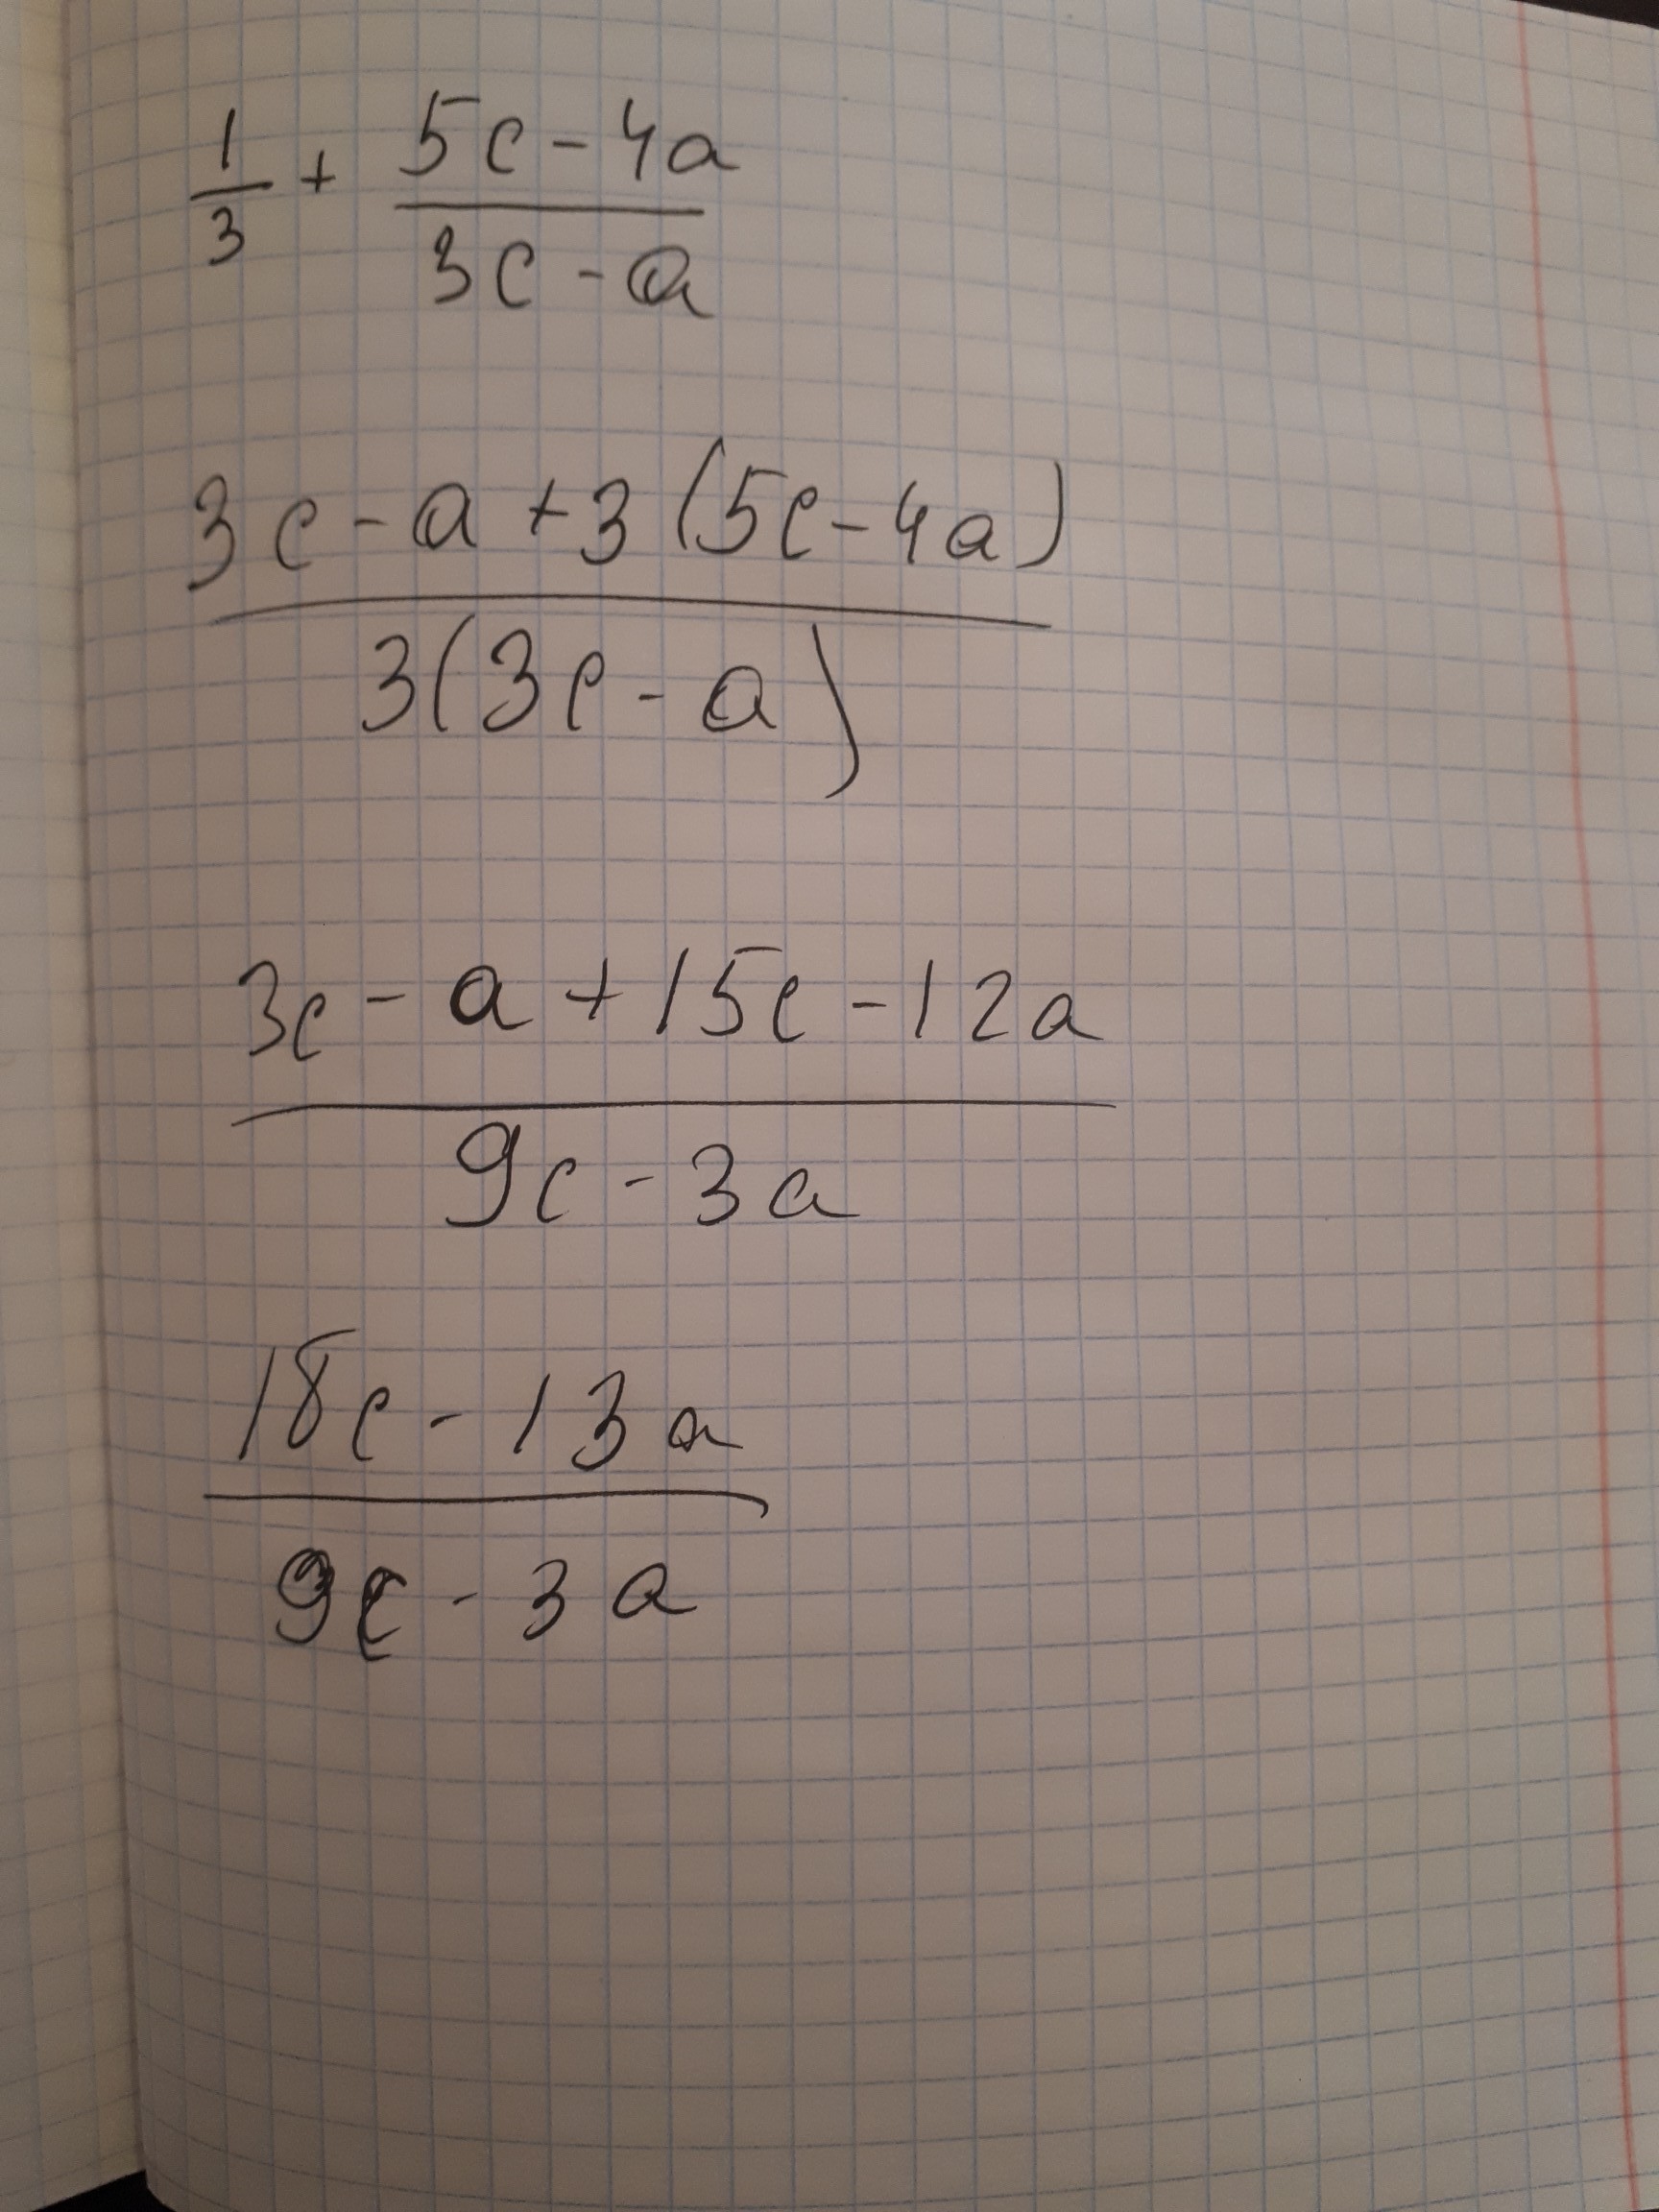 1/3 + (5c - 4a)/(3c - a)
(3c - a + 3(5c - 4a))/(3(3c - a))
(3c - a + 15c - 12a)/(9c - 3a)
(18c - 13a)/(9c - 3a)